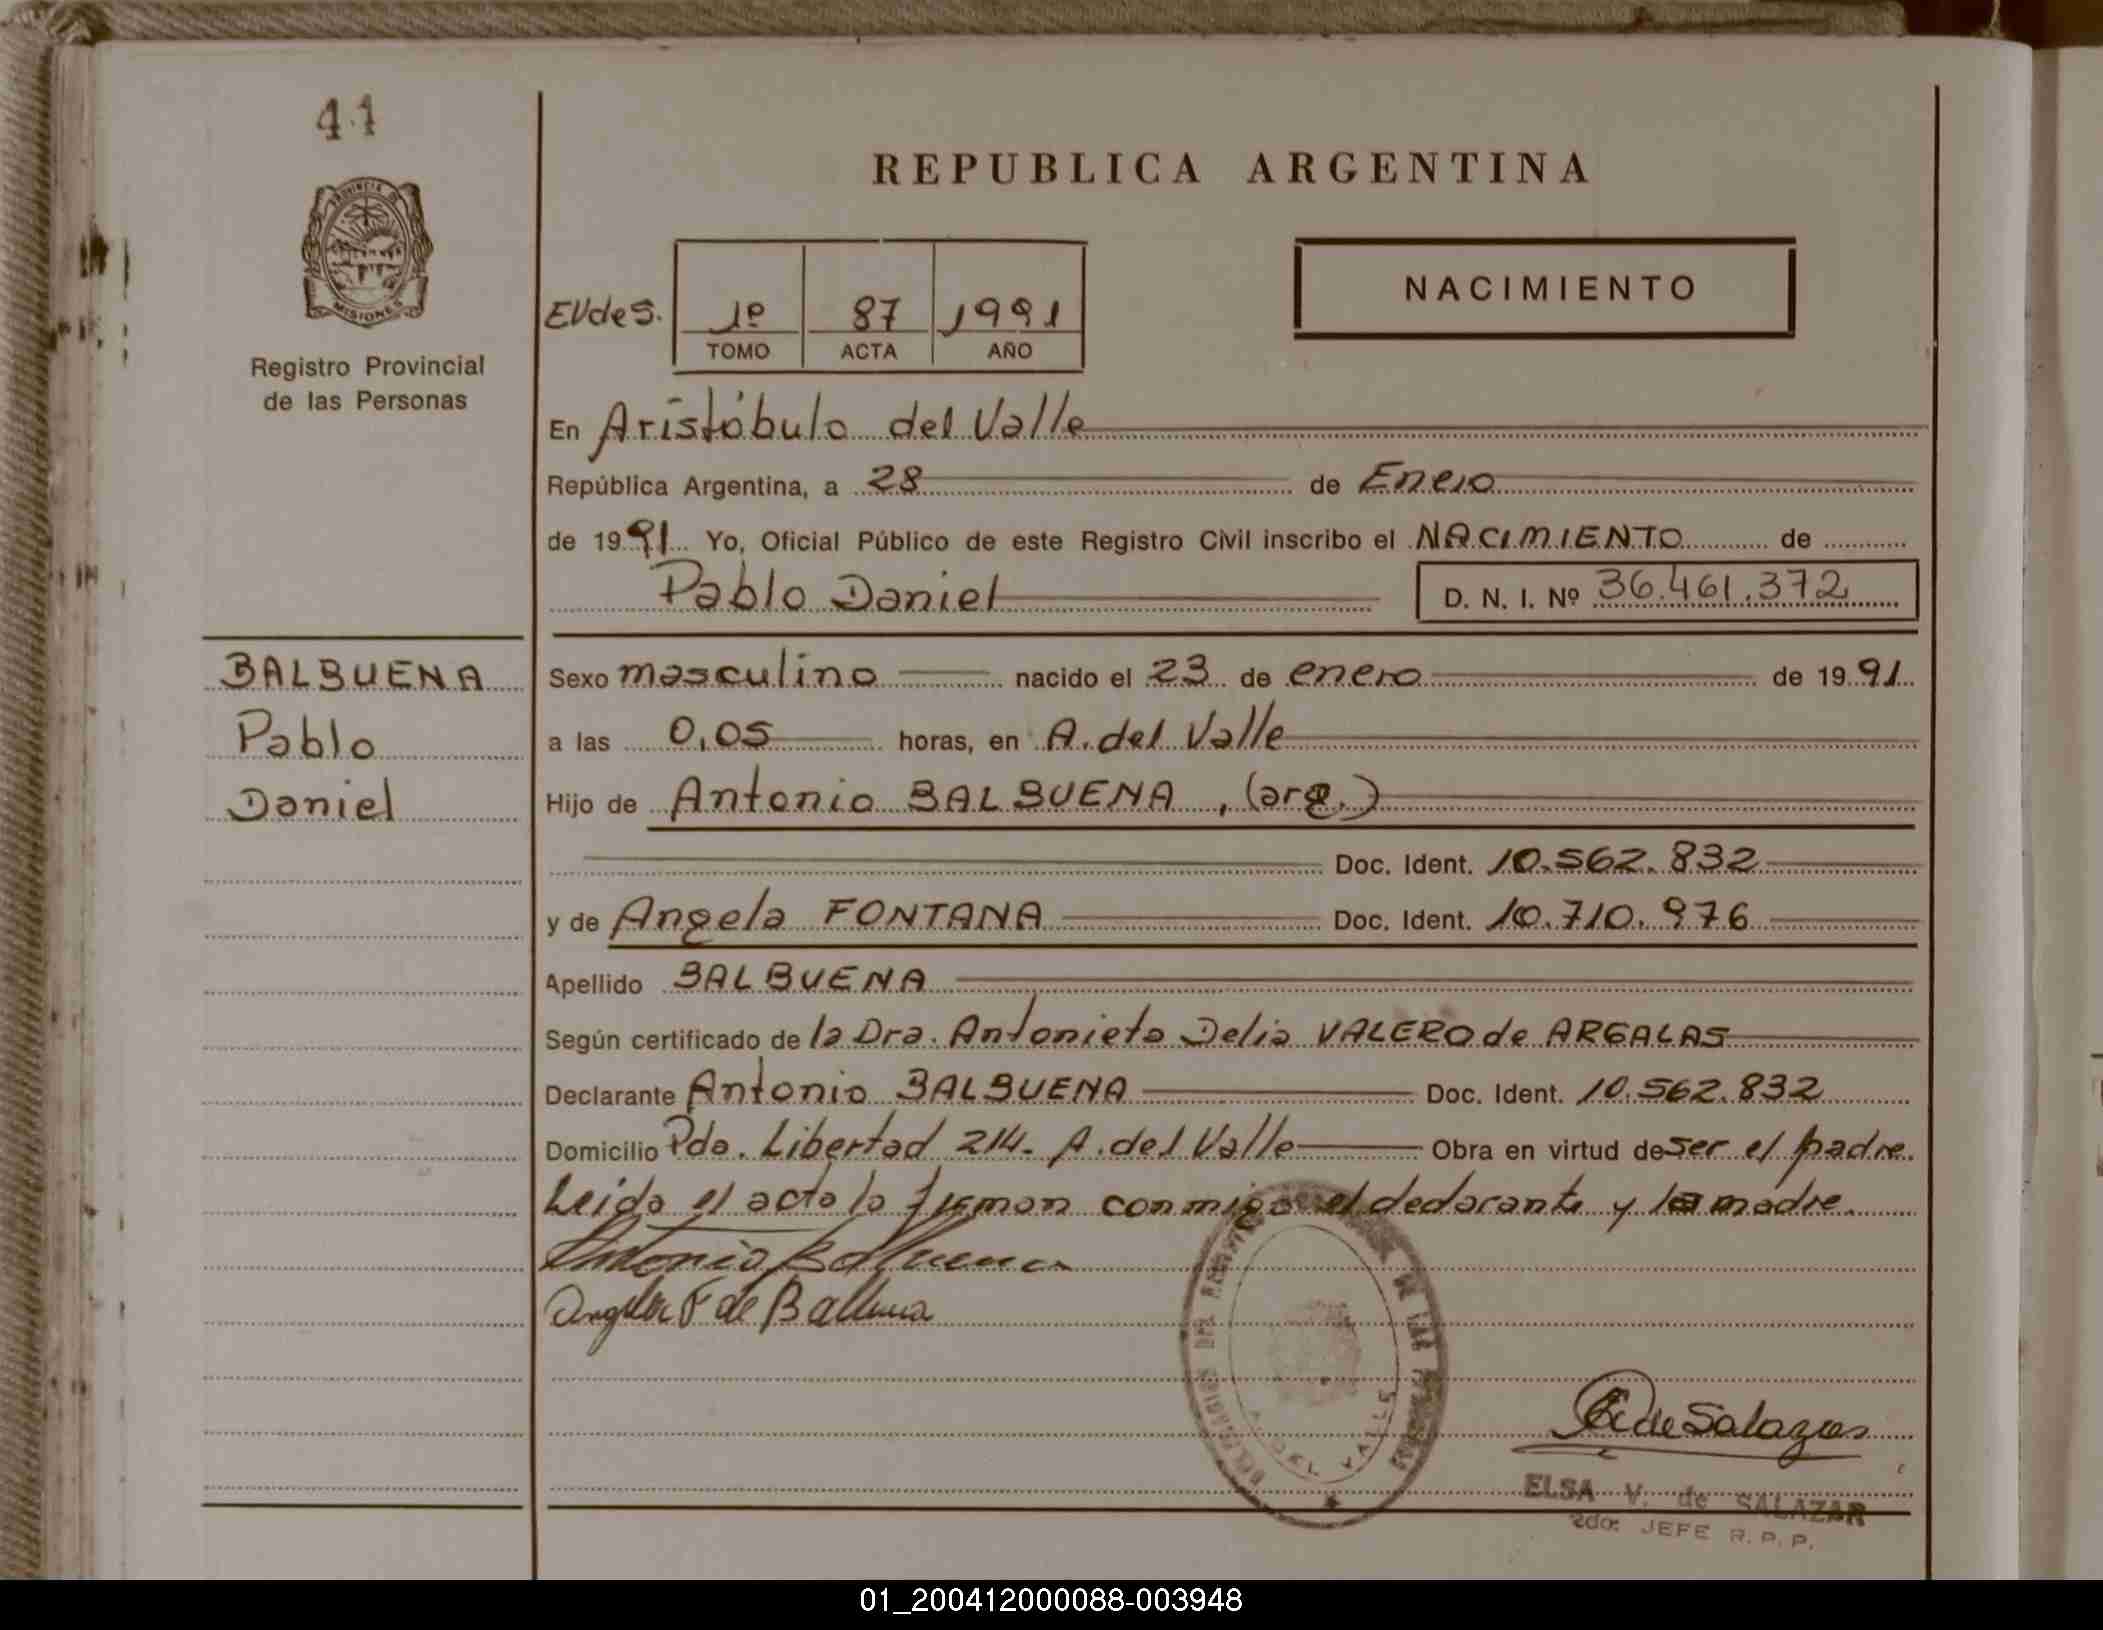 41
REPUBLICA ARGENTINA
PROVINCIA DE MISIONES
Registro Provincial
de las Personas
EVdeS. 1º 87 1991
TOMO ACTA AÑO
NACIMIENTO
En Aristóbulo del Valle
República Argentina, a 28 de Enero
de 1991 Yo, Oficial Público de este Registro Civil inscribo el NACIMIENTO de
Pablo Daniel D. N. I. Nº 36.461.372
BALBUENA
Pablo
Daniel
Sexo masculino nacido el 23 de enero de 1991
a las 0,05 horas, en A. del Valle
Hijo de Antonio BALBUENA, (arg.)
Doc. Ident. 10.562.832
y de Angela FONTANA Doc. Ident. 10.710.976
Apellido BALBUENA
Según certificado de la Dra. Antonieta Delia VALERO de ARGALAS
Declarante Antonio BALBUENA Doc. Ident. 10.562.832
Domicilio Pda. Libertad 214. A. del Valle Obra en virtud de ser el padre.
Leida el acta la firman conmigo el declarante y la madre.
Antonio Balbuena
Angela F de Balbuena
DELEGACION DEL DE LAS
A. DEL VALLE
E de Salazar
ELSA V. de SALAZAR
2do. JEFE R. P. P.
01_200412000088-003948